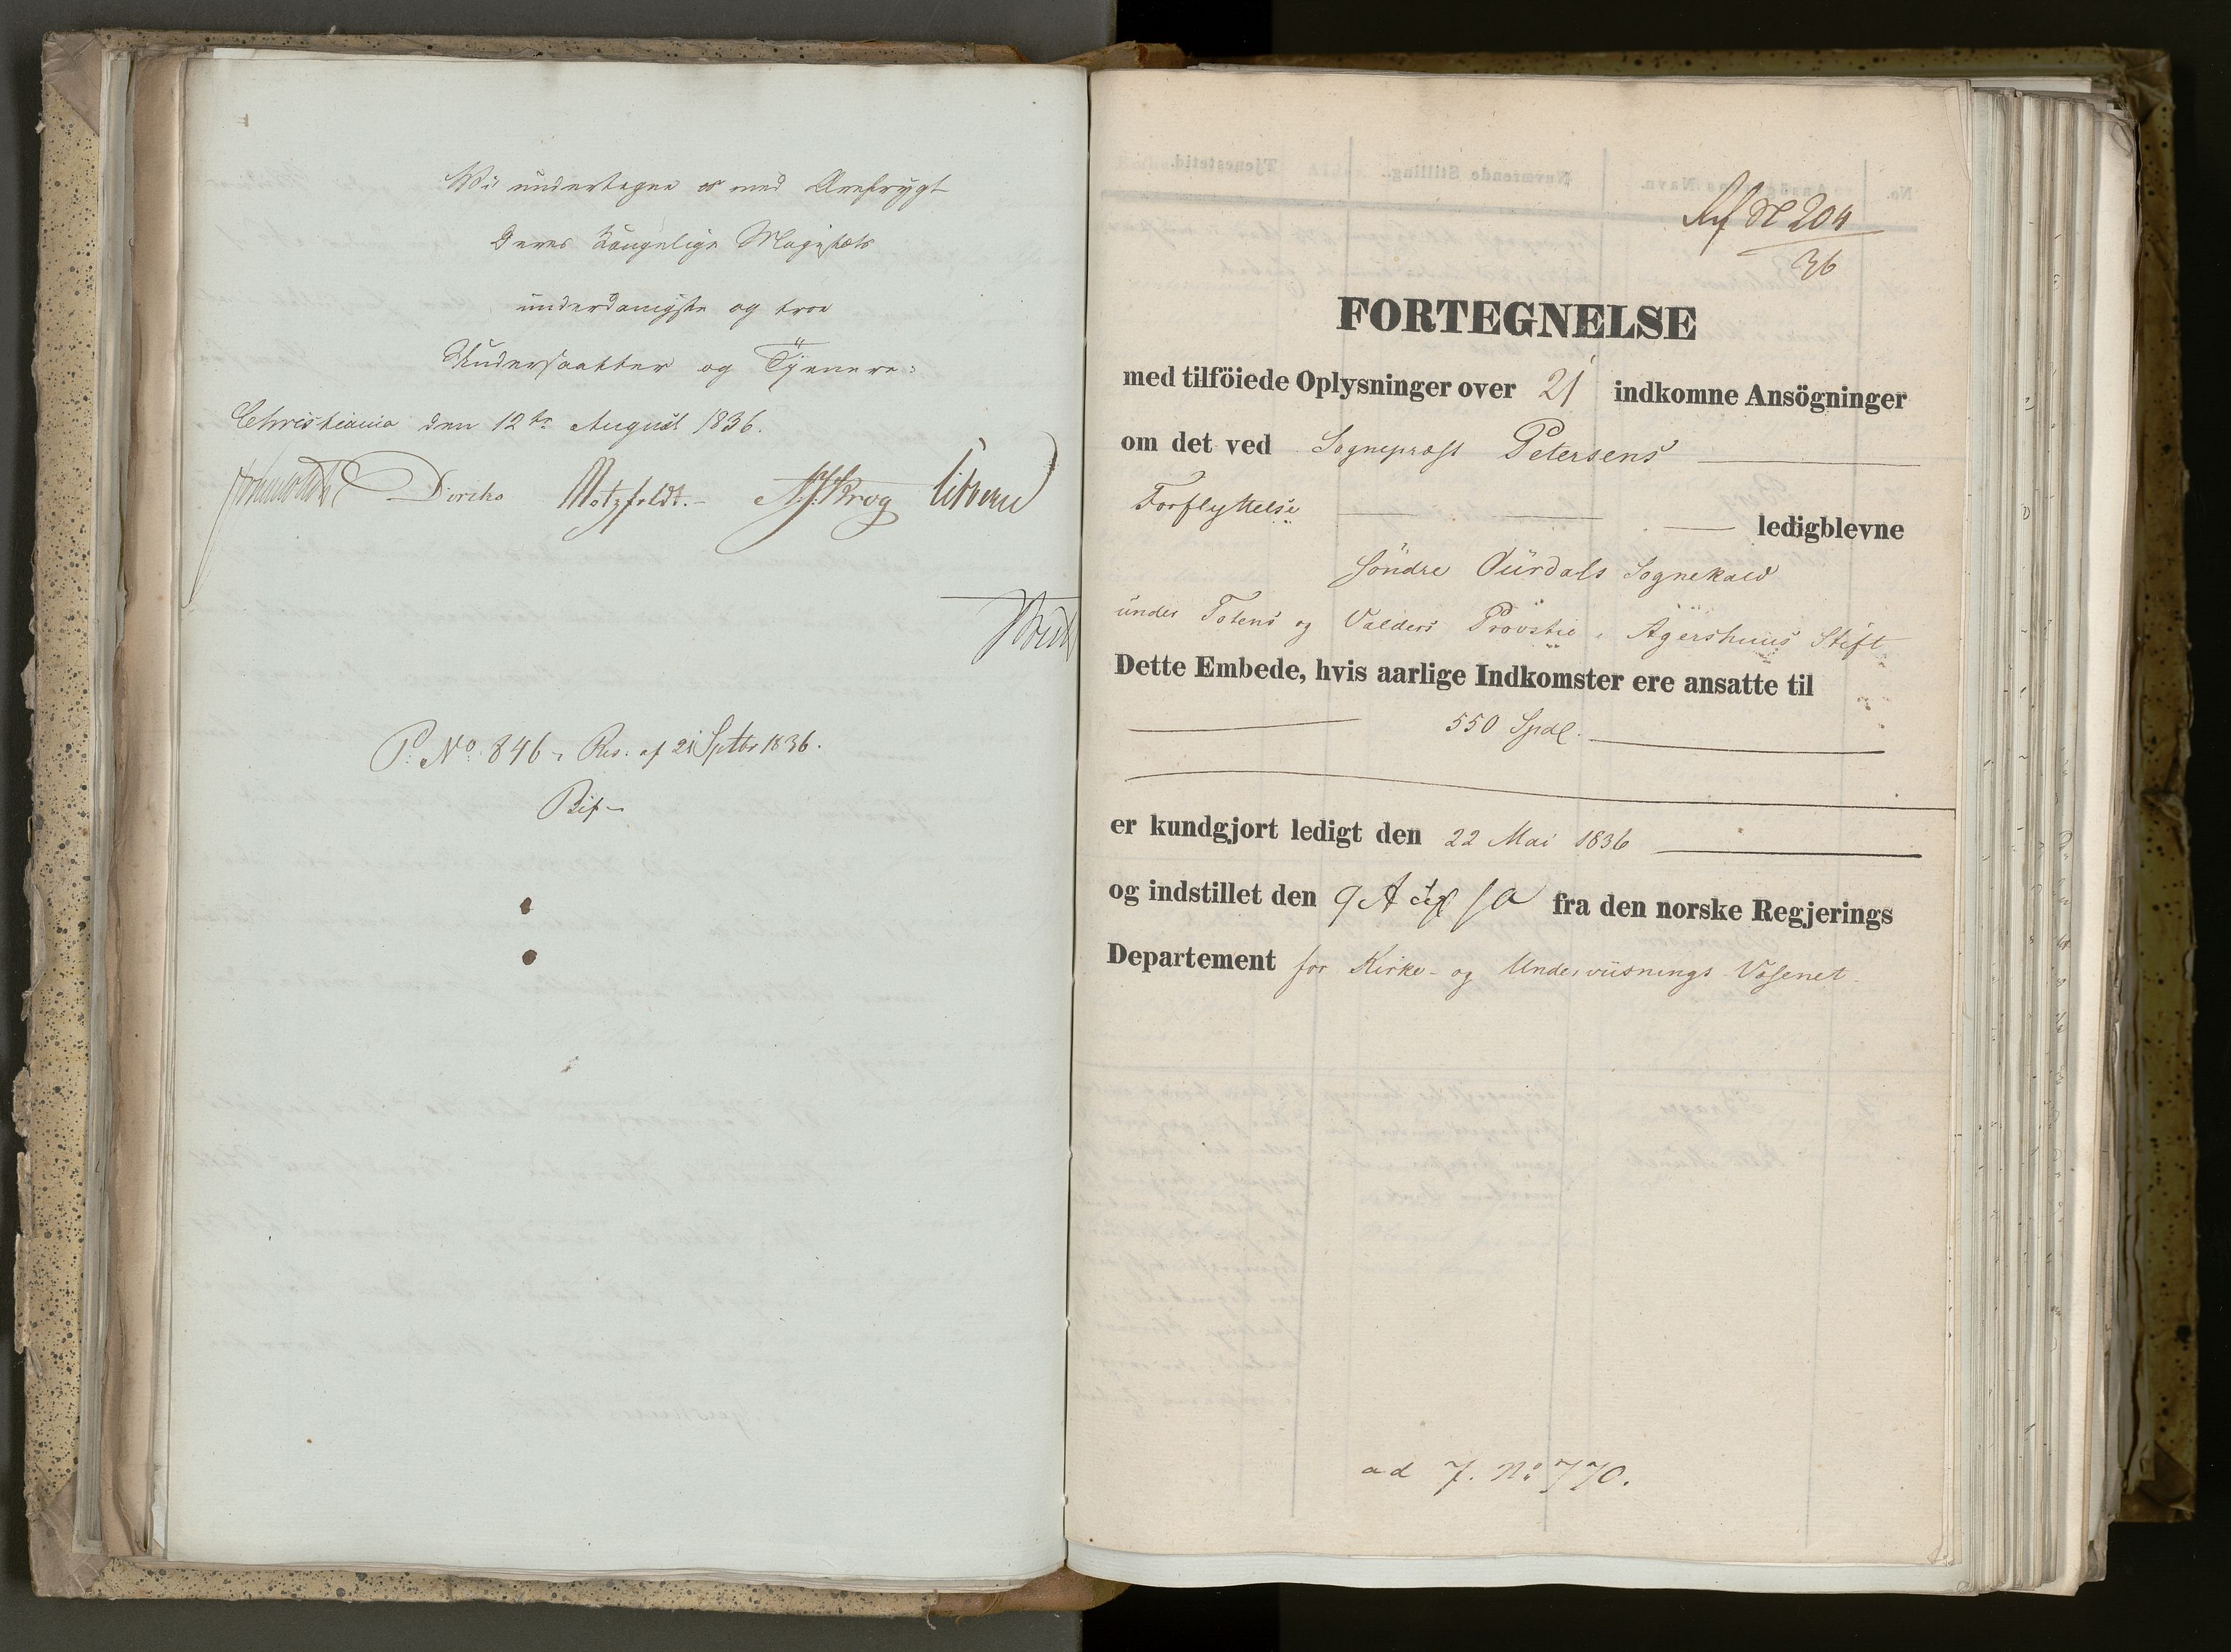 Vi undertegne os med Ærefrygt
Deres Kongelige Majestæts
underdanigste og troe
Undersaatter og Tjenere:
Christiania den 12te August 1836.
Diriks Motzfeldt. Krog
P. No. 846, Res. af 21 Septbr 1836.
No 204
36
FORTEGNELSE
med tilföiede Oplysninger over 21 indkomne Ansögninger
om det ved Sognepræst Petersens
Forflyttelse ledigblevne
Söndre Ourdals Sognekald
under Totens og Valders Provstie i Agershuus Stift
Dette Embede, hvis aarlige Indkomster ere ansatte til
550 Spdl.
er kundgjort ledigt den 22 Mai 1836
og indstillet den 9 Aug s a fra den norske Regjerings
Departement for Kirke- og Underviisnings Væsenet
ad J. No 770.